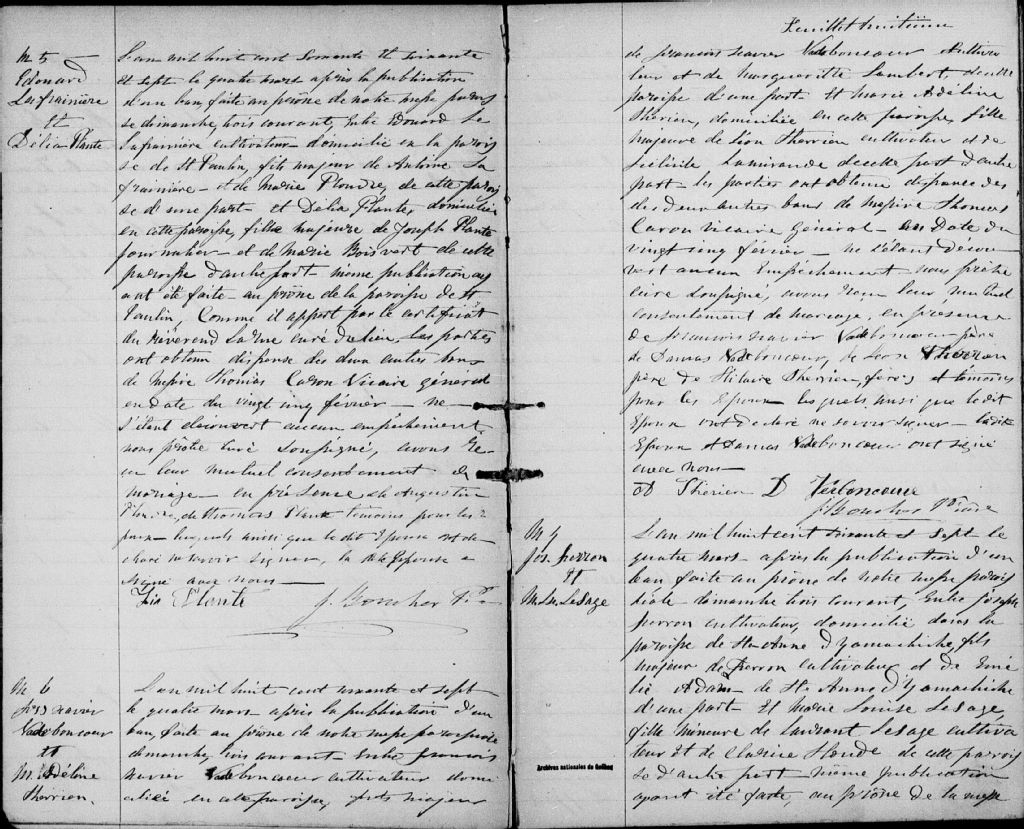 M 5
Edouard
Lafrainière
et
Délia Plante
L'an mil huit cent soixante et soixante
et sept le quatre mars après la publication
d'un ban faite au prône de notre messe parois
se dimanche, trois courant, Entre Edouard La
frainière cultivateur domicilié en la parois
se de St Paulin, fils majeur de Antoine La
frainière et de Marie Plourde, de cette parois
se d'une part et Délia Plante, domiciliée
en cette paroisse, fille majeure de Joseph Plante
journalier et de Marie Boisvert de cette
paroisse d'autre part même publication ay
ant été faite au prône de la paroisse de St
Paulin, Comme il appert par le certificat
du Révérend curé du lieu, Les parties
ont obtenu dispense des deux autres bans
de Messire Thomas Caron Vicaire général
en date du vingt cinq février ne
s'étant découvert aucun empêchement
nous prêtre curé soussigné, avons re
çu leur mutuel consentement de
mariage en présence de Augustin
de Thomas Plante témoins pour les é
poux lesquels ainsi que le dit Epoux ont dé
claré ne savoir signer, la dite Epouse a
signé avec nous
Plante J. Boucher Ptre
M 6
Frs Xavier
Vadeboncour
et
M. Adéline
Therrien.
L'an mil huit cent soixante et sept
le quatre mars après la publication d'un
ban, faite au prône de notre messe paroissiale
dimanche, trois courant Entre François
Xavier Vadeboncoeur cultivateur domi
cilié en cette paroisse, fils majeur
Feuillet huitième
de François Xavier Vadeboncoeur Cultiva
teur et de Marguerite Lambert, de cette
paroisse d'une part Et Marie Adéline
Therrien, domiciliée en cette paroisse, fille
majeure de Léon Therrien cultivateur et de
Félicité Lamirande de cette part d'autre
part les parties ont obtenu dispense des
des deux autres bans de Messire Thomas
Caron Vicaire Général en Date du
vingt cinq février ne s'étant décou
vert aucun Empêchement nous prêtre
curé soussigné, avons reçu leur mutuel
consentement de mariage, en présence
de François Xavier Vadeboncoeur père
de Damas Vadeboncoeur, de Léon Therrien
père de Hilaire Therrien, frères et témoins
pour les Epoux lesquels, ainsi que le dit
Epoux ont déclaré ne savoir signer ladite
Epouse et Damas Vadeboncoeur ont signé
avec nous
A Therien D Vadeboncoeur
J Boucher Ptre
M 7
Jos. Ferron
et
M. L. LeSage
L'an mil huit cent soixante et sept le
quatre mars après la publication d'un
ban faite au prône de notre messe parois
siale dimanche trois courant, Entre Joseph
Ferron cultivateur, domicilié dans la
paroisse de Ste Anne d'yamachiche, fils
majeur de Ferron cultivateur et de Emé
lie Adam de Ste Anne d'yamachiche
d'une part Et Marie Louise LeSage
fille mineure de Laurent Lesage cultiva
teur Et de Clarice Houde de cette parois
se d'autre part même publication
ayant été faite, au prône de la messe
Archives nationales du Québec